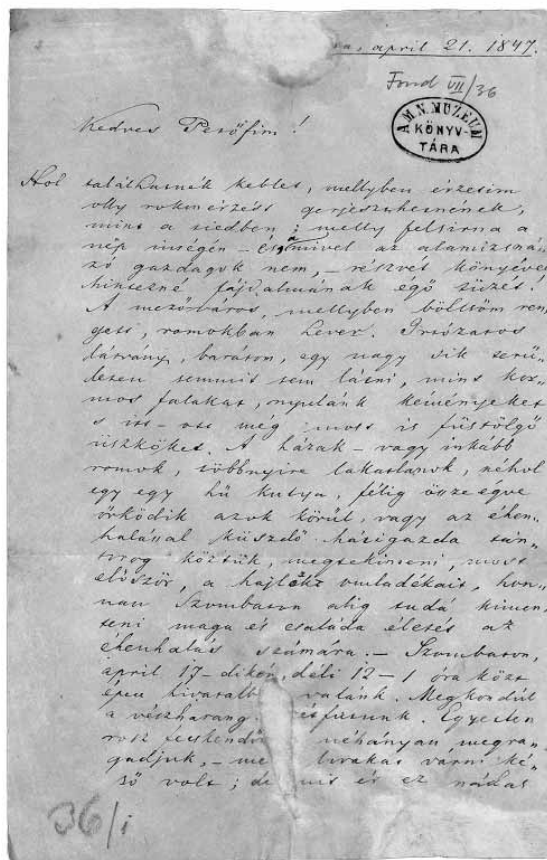 april 21. 1847.
Fond VII/36
A M. N. MUZEUM
KÖNYV-
TÁRA
Kedves Petőfim!
Hol találhatnék keblet, mellyben érzésim
olly rokonérzést gerjeszthetnének,
mint a tiedben; melly felsirna a
nép inségén – és mivel az alamizsná-
zó gazdagok nem, – részvét könyével
hintezné fájdalmának égő tüzét!
A mezőváros, mellyben bölcsőm ren-
gett, romokban hever. Irtózatos
látvány, barátom, egy nagy sik terü-
leten semmit sem látni, mint kor-
mos falakat, nyulánk kéményeket
s itt-ott még most is füstölgő
üszköket. A házak – vagy inkább
romok, többnyire lakatlanok, néhol
egy egy hű kutya, félig összeégve
őrködik azok körül, vagy az éhen-
halállal küszdő házigazda tán-
torog köztük, megtekinteni, most
először, a hajlék omladékait, hon-
nan Szombaton alig tudá kimen-
teni maga és családa életét az
éhenhalás számára. – Szombaton,
april 17-dikén, déli 12–1 óra közt
épen valánk. Megkondúl
a vészharang. Egyetlen
rosz néhányan megra-
gadjuk, – várni ké-
ső volt; és ez nádas
36/1